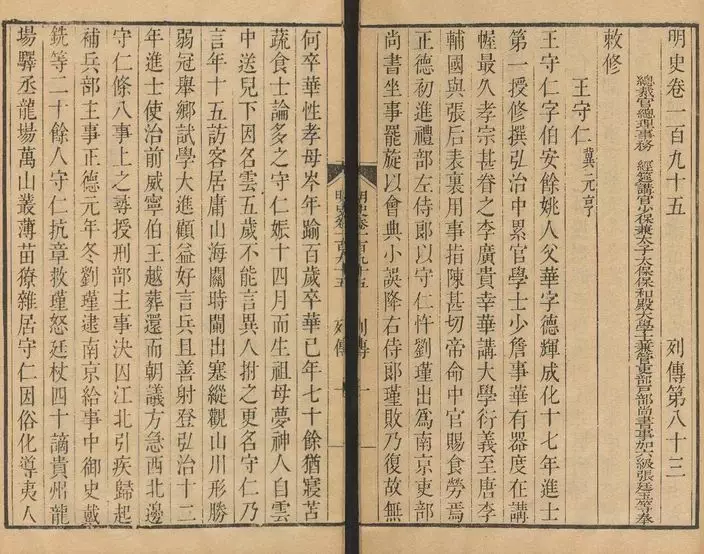 明史卷一百九十五 列傳第八十三
總裁官總理事務 經筵講官少保兼太子太保保和殿大學士兼管吏部戶部尚書事加六級張廷玉等奉
敕修
王守仁 冀元亨
王守仁字伯安餘姚人父華字德輝成化十七年進士
第一授修撰弘治中累官學士少詹事華有器度在講
幄最久孝宗甚眷之李廣貴幸華講大學衍義至唐李
輔國與張后表裏用事指陳甚切帝命中官賜食勞焉
正德初進禮部左侍郎以守仁忤劉瑾出爲南京吏部
尚書坐事罷旋以會典小誤降右侍郎瑾敗乃復故無
明史卷一百九十五 列傳 一
明史卷一百九十五 列傳
何卒華性孝母岑年踰百歲卒華已年七十餘猶寢苫
蔬食士論多之守仁娠十四月而生祖母夢神人自雲
中送兒下因名雲五歲不能言異人拊之更名守仁乃
言年十五訪客居庸山海關時闌出塞縱觀山川形勝
弱冠舉鄉試學大進顧益好言兵且善射登弘治十二
年進士使治前威寧伯王越葬還而朝議方急西北邊
守仁條八事上之尋授刑部主事決囚江北引疾歸起
補兵部主事正德元年冬劉瑾逮南京給事中御史戴
銑等二十餘人守仁抗章救瑾怒廷杖四十謫貴州龍
場驛丞龍場萬山叢薄苗獠雜居守仁因俗化導夷人